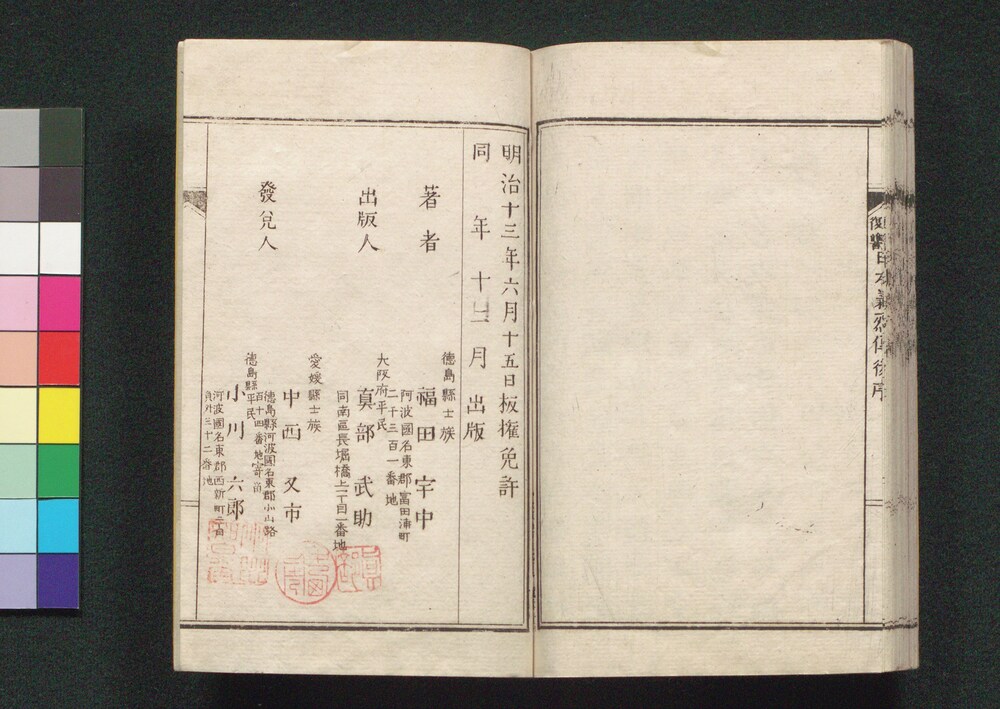 復讐
後序
明治十三年六月十五日板權免許
同年十二月出版
著者
徳島縣士族
福田宇中
阿波國名東郡富田浦町
二千三百一番地
出版人
大阪府平民
真部武助
同南區長堀橋上一丁目一番地
發兌人
愛媛縣士族
中西又市
徳島縣阿波國名東郡小山路
百十四番地寄留
徳島縣平民
小川六郎
阿波國名東郡西新町
三十二番地